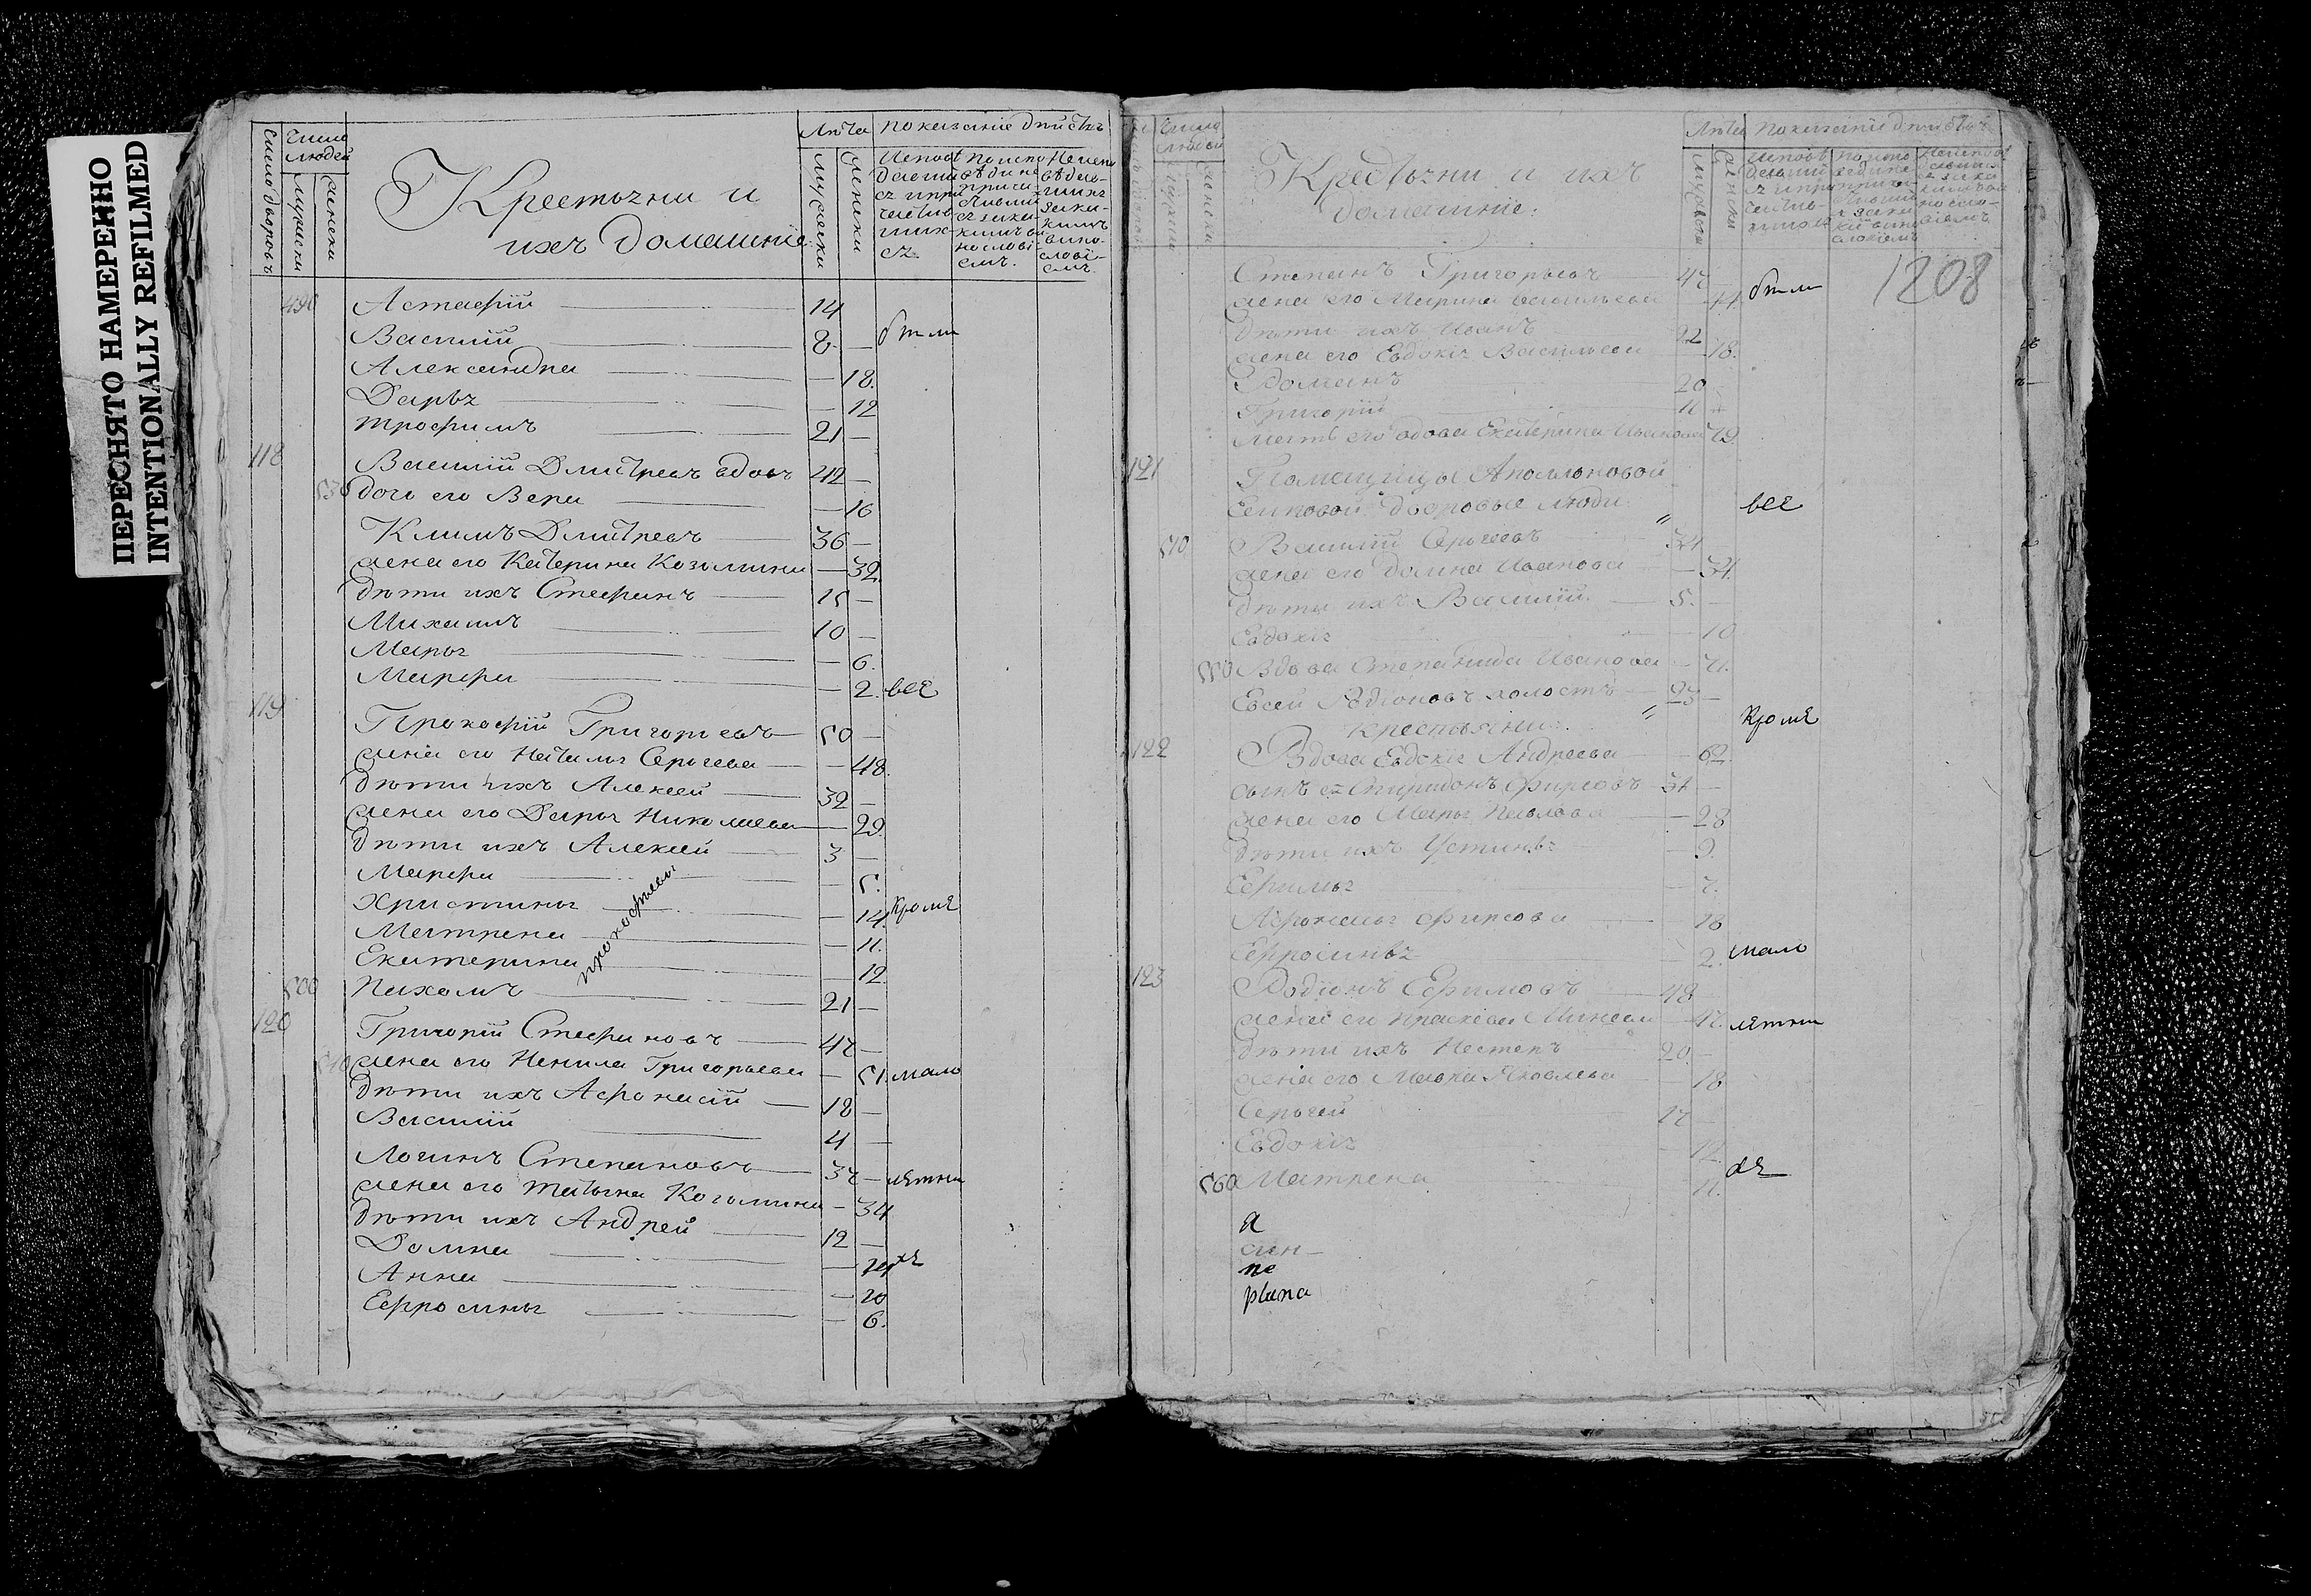 ПЕРЕСНЯТО НАМЕРЕННО
INTENTIONALLY REFILMED
число дворовъ
число людей
мужески
женски
Крестьяни и
ихъ домашніе
Лѣта
мужески
женски
показаніе дѣйствъ
Астафiй 14
Василiй 8. — были
490
Александра — 18.
Дарья — 12
Трофимъ 21 —
118
Василiй Дмитревъ вдовъ 42 —
дочь его Вера — 16
Климъ Дмитревъ 36 —
жена его Катерина Козмина — 32.
дѣти ихъ Стефанъ 15 —
Михаилъ 10 —
Марья — 6.
Марфа — 2. все
119
Прокофiй Григорьевъ 50 —
жена его Наталья Сергеева — 48.
дѣти ихъ Алексей 32 —
жена его Дарья Николаева — 29.
дѣти ихъ Алексей 3 —
Марфа — 5.
Христинья — 14. кроме
прокофьевы
Матрена — 11.
Екатерина — 12.
500 Пахомъ 21 —
120
Григорiй Стефановъ 47 —
510 жена его Ненила Григорьева — 51. мало
дѣти ихъ Афонасiй 18 —
Василiй 4 —
Логинъ Степановъ 37 — летни
жена его Татьяна Козмина — 34
дѣти ихъ Андрей 12 —
Домна —
Анна — 10
Ефросинья — 6.
Крестьяни и ихъ
домашніе:
Лѣта
показаніе дѣйствъ
1208
Степанъ Григорьевъ 47
жена его Марина Васильева 44. были
дѣти ихъ Иванъ 22
жена его Евдокiя Васильева — 18.
Романъ 20
Григорiй 11
мать его вдова Екатерина Иванова 79.
121
Помещицы Аполлоновой
дворовые люди все
510 Василiй Сергеевъ 34
жена его Домна Иванова — 34.
дѣти ихъ Василiй 5. —
Евдокiя 10
550 Вдова Степанида Иванова — 71.
Евсей Родiоновъ холостъ 23 —
Крестьяни кроме
122
Вдова Евдокiя Андреева — 62.
сынъ ея Спиридонъ Фирсовъ 31 —
жена его Марья Павлова — 28
дѣти ихъ Устинья — 9.
Ефимья — 7.
Афонасья Фирсова — 16
Ефросинья — 2. мало
123
Родiонъ Ефимовъ 48
жена его Прасковья Минеева — 47. летни
дѣти ихъ Нестеръ 20 —
жена его Мавра Яковлева — 18
Сергей 17 —
Евдокiя
560 Матрена 11.